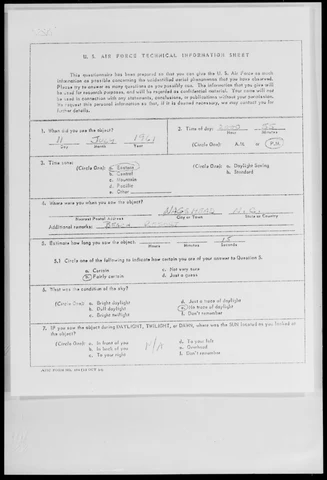 U. S. AIR FORCE TECHNICAL INFORMATION SHEET
This questionnaire has been prepared so that you can give the U. S. Air Force as much
information as possible concerning the unidentified aerial phenomenon that you have observed.
Please try to answer as many questions as you possibly can. The information that you give will
be used for research purposes, and will be regarded as confidential material. Your name will not
be used in connection with any statements, conclusions, or publications without your permission.
We request this personal information so that, if it is deemed necessary, we may contact you for
further details.
1. When did you see the object?
11 July 1961
Day Month Year
2. Time of day:
Hour Minutes
(Circle One): A.M. or P.M.
3. Time zone:
(Circle One): a. Eastern
b. Central
c. Mountain
d. Pacific
e. Other
(Circle One): a. Daylight Saving
b. Standard
4. Where were you when you saw the object?
NAGS HEAD
Nearest Postal Address City or Town State or Country
Additional remarks: BEACH
5. Estimate how long you saw the object. 15
Hours Minutes Seconds
5.1 Circle one of the following to indicate how certain you are of your answer to Question 5.
a. Certain
b. Fairly certain
c. Not very sure
d. Just a guess
6. What was the condition of the sky?
(Circle One): a. Bright daylight
b. Dull daylight
c. Bright twilight
d. Just a trace of daylight
e. No trace of daylight
f. Don't remember
7. IF you saw the object during DAYLIGHT, TWILIGHT, or DAWN, where was the SUN located as you looked at
the object?
(Circle One): a. In front of you
b. In back of you
c. To your right
N/A
d. To your left
e. Overhead
f. Don't remember